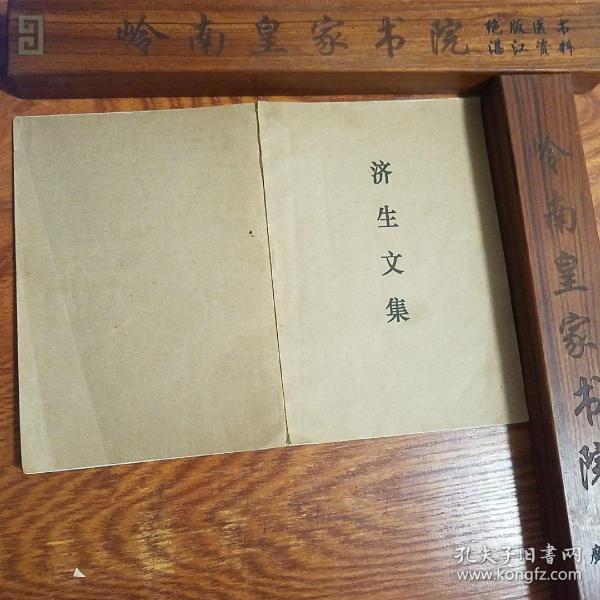 岭南皇家书院
绝版医书
湛江资料
济生文集
岭南皇家书院
孔夫子旧书网
www.kongfz.com